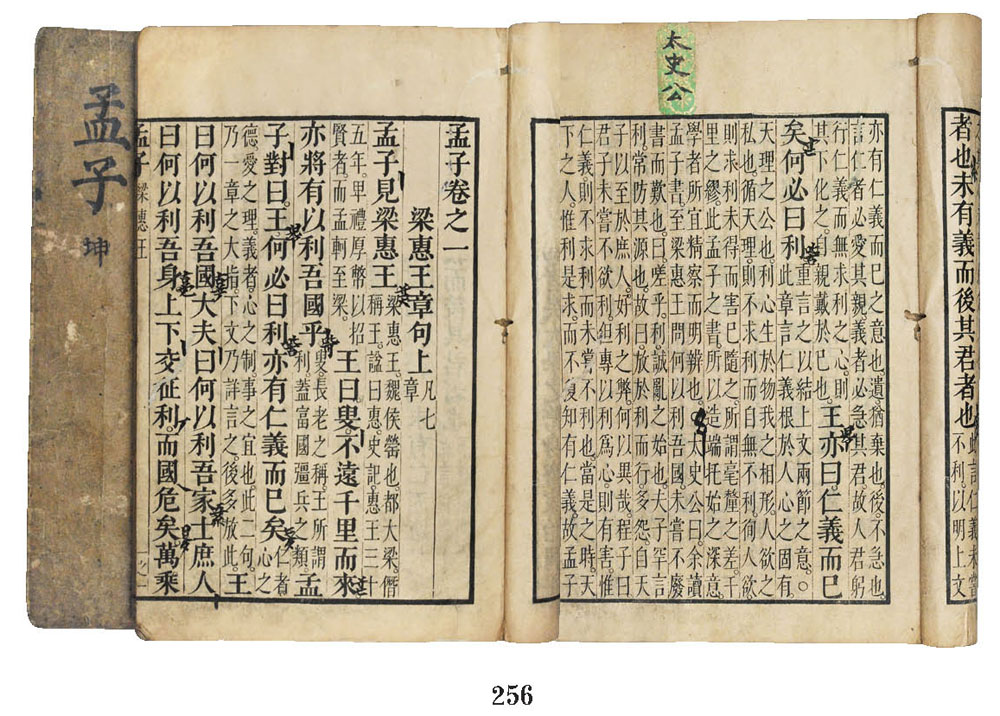 太史公
者也未有義而後其君者也
此言仁義未嘗
不利。以明上文
亦有仁義而已之意也。遺、猶棄也。後、不急也
言仁者必愛其親。義者必急其君。故人君躬
行仁義而無求利之心。則
其下化之。自親戴於已也。
王亦曰。仁義而已
矣。何必曰利
重言之以結上文兩節之意。
此章言仁義根於人心之固有。
天理之公也。利心生於物我之相形人欲之
私也。循天理則不求利而自無不利徇人欲
則求利未得而害已隨之。所謂毫釐之差千
里之繆。此孟子之書所以造端托始之深意
學者所宜精察而明辨也。太史公曰余讀
孟子書至梁惠王問何以利吾國。未嘗不廢
書而歎也。曰嗟乎。利誠亂之始也。夫子罕言
利常防其源也。故曰放於利而行多怨。自天
子以至於庶人。好利之弊。何以異哉程子曰
君子未嘗不欲利。但專以利爲心。則有害惟
仁義則不求利而未嘗不利也當是之時。天
下之人。惟利是求。而不復知有仁義。故孟子
孟子卷之一
梁惠王章句上
凡七
章
孟子見梁惠王
梁惠王。魏侯罃也。都大梁。僭
稱王。謚曰惠。史記。惠王三十
五年。卑禮厚幣以招
賢者。而孟軻至梁。
王曰叟。不遠千里而來
亦將有以利吾國乎
叟。長老之稱。王所謂
利蓋富國彊兵之類。
孟
子對曰。王。何必曰利亦有仁義而已矣
仁者
心之
德。愛之理。義者。心之制。事之宜也。此二句。
乃一章之大指。下文乃詳言之。後多放此。
王
曰何以利吾國大夫曰何以利吾家士庶人
曰何以利吾身上下交征利。而國危矣萬乘
孟子 梁惠王
孟子 坤
256